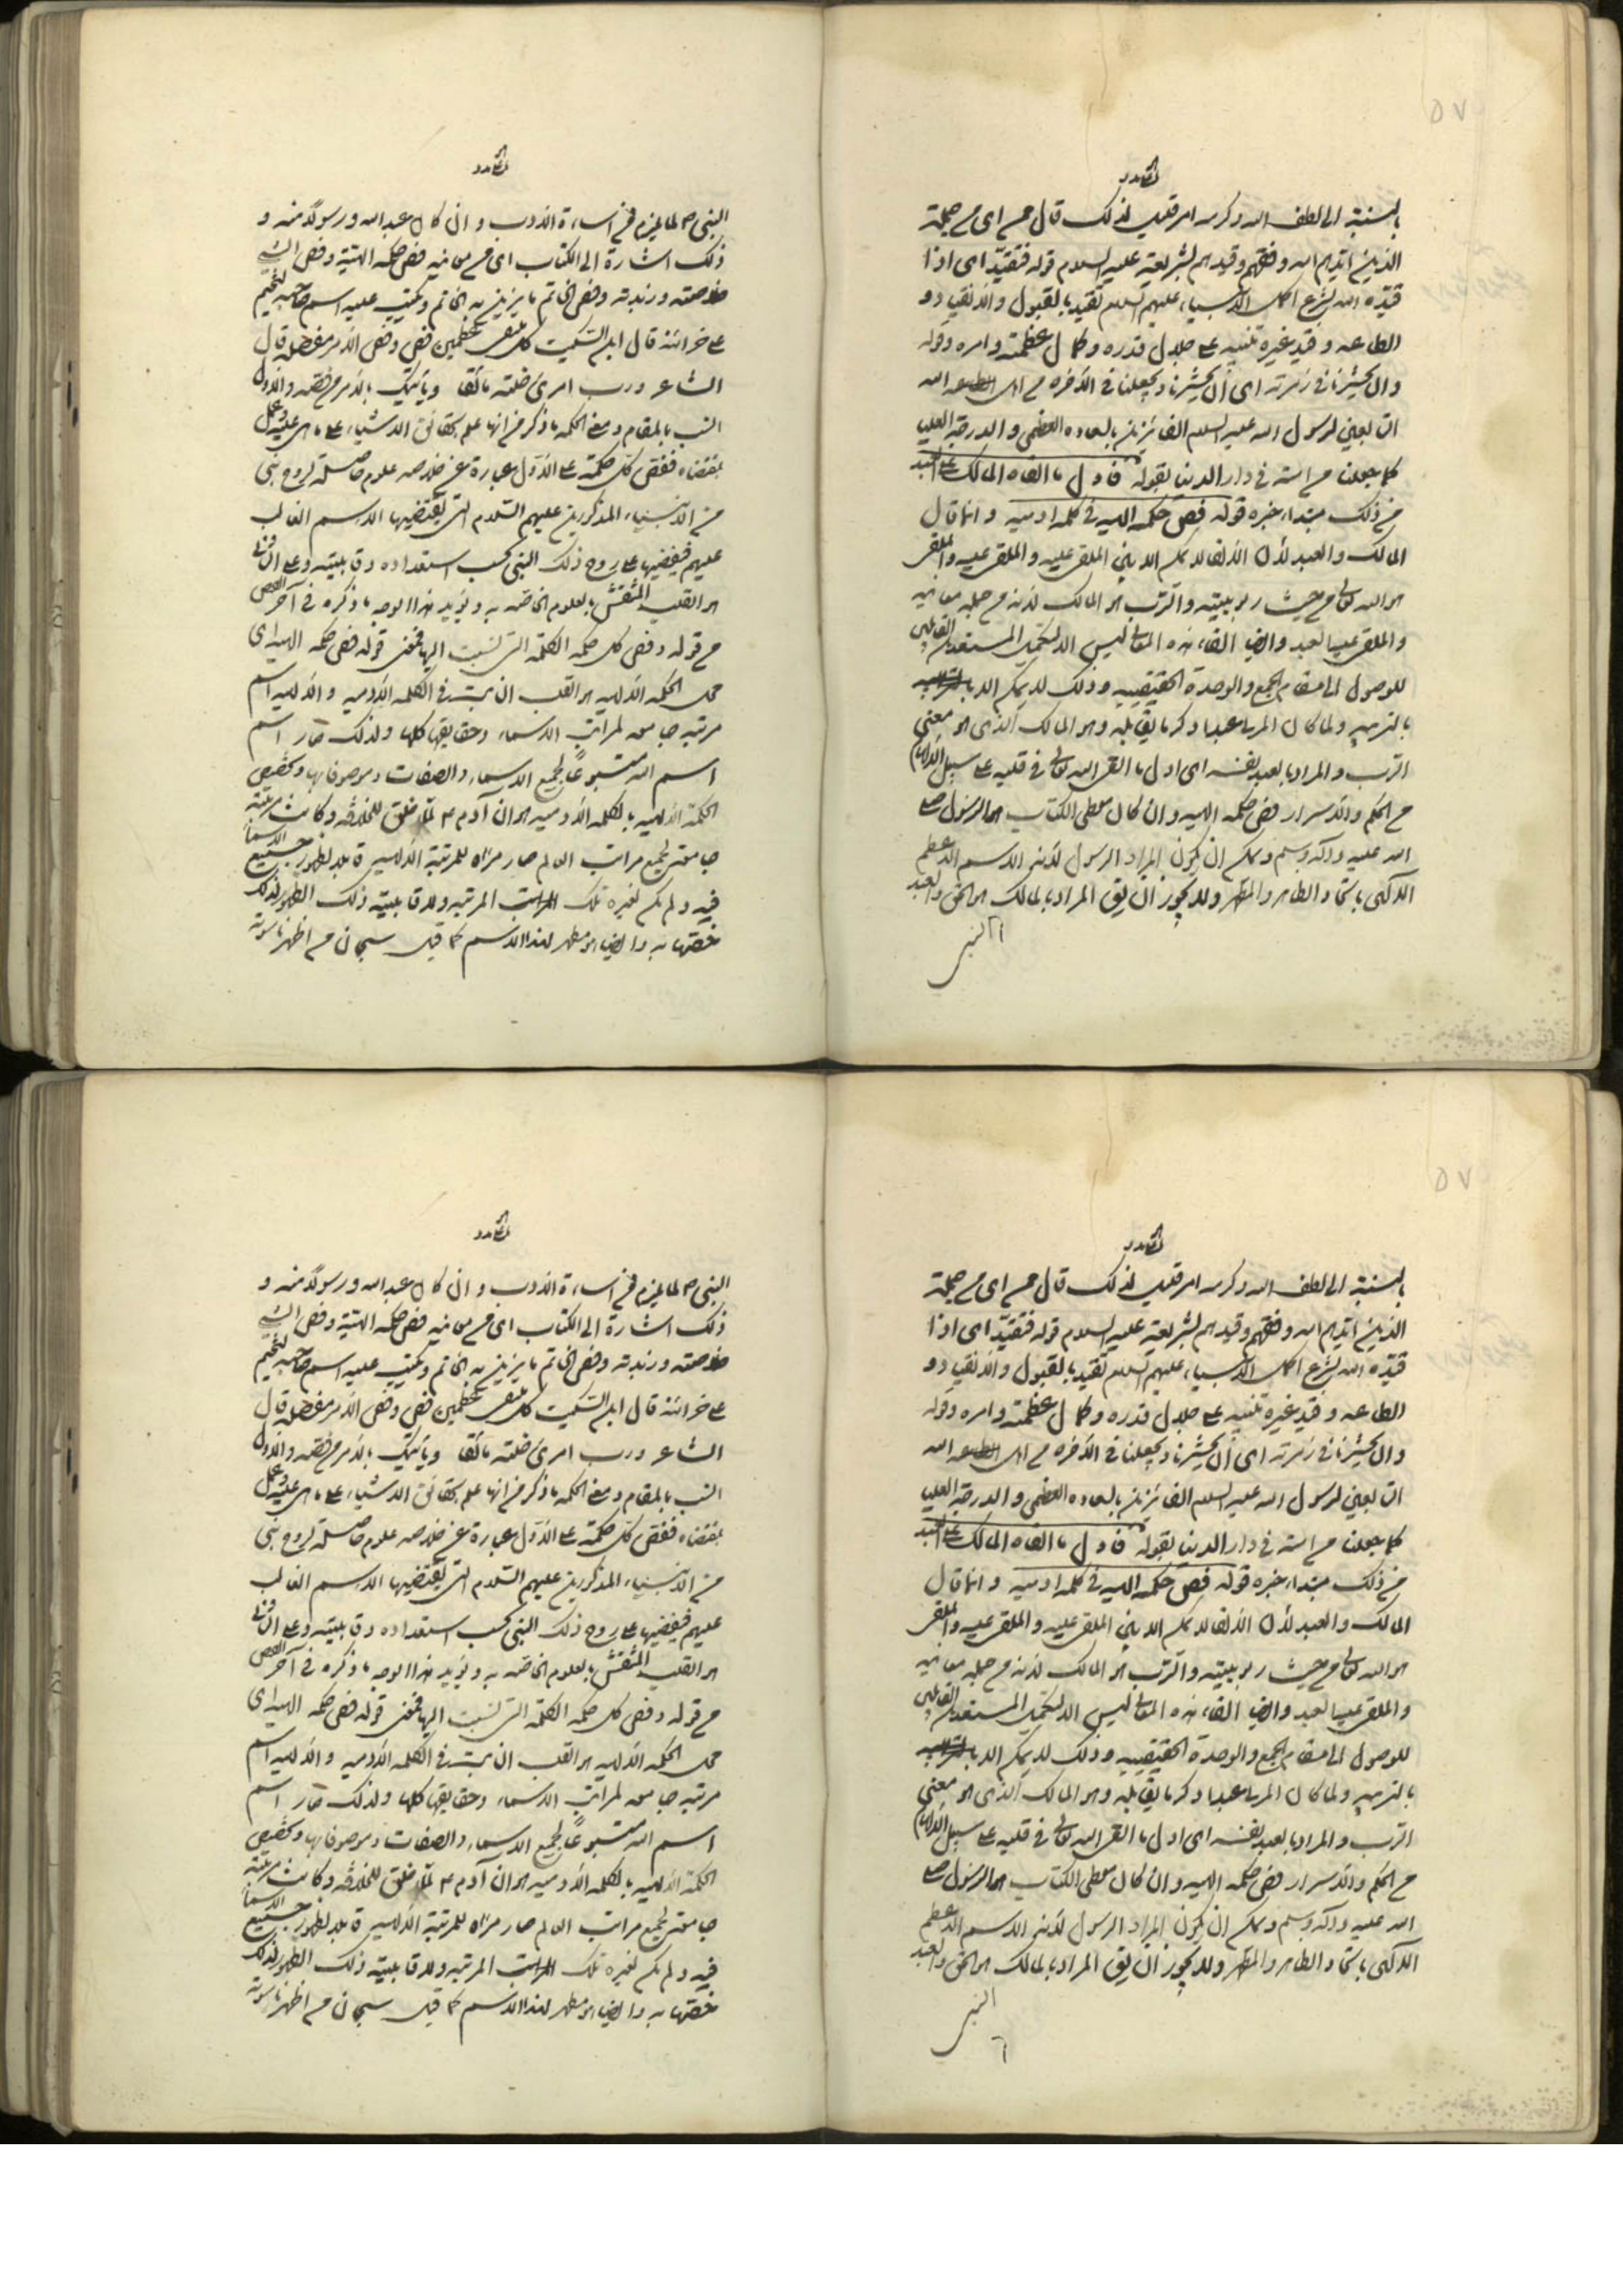 ۵۷
بالنسبة الى لطف الله وكرمه امر قليل لذلك قال من اى من جملة
الذين ايدهم الله ووفقهم وقيدهم لشريعته عليه السلام قوله فتقيد اى اذا
قيده الله بشرع اكمل الانبياء عليهم السلام تقيد بالقبول والانقياد و
الطاعه وقيد غيره تنبيه على جلال قدره وكمال عظمته وامره وقوله
وان يحشرنا فى زمرته اى ان يحشرنا ويجعلنا فى الآخره من اهل الله
التابعين لرسول الله عليه السلام الفائزين بالسعاده العظمى والدرجة العليا
كما جعلنا من امته فى دار الدنيا بقوله فاول ما القاه المالك على العبد
من ذلك مبتداء خبره قوله فص حكمه الهيه فى كلمه ادميه وانما قال
المالك والعبد لان الالقاء لا يمكن الا بين الملقى عليه والملقى عليه والملقى
هو الله تعالى من حيث ربوبيته والرب هو المالك لانه من جمله معانيه
والملقى عليه العبد وايضا القاء هذه المعانى ليس الا لتكميل المستعدين القابلين
للوصول الى مقام الجمع والوحدة الحقيقيه وذلك لا يمكن الا
بالتربيه ولما كان المربا عبدا ذكر ما يقابله وهو المالك الذى هو معنى
الرب والمراد بالعبد نفسه اى اول ما القى الله تعالى فى قلبه على سبيل الالهام
من الحكم والاسرار فص حكمه الهيه وان كان معطى الكتاب هو الرسول صلى
الله عليه وآله وسلم ويمكن ان يكون المراد الرسول لانه الاسم الاعظم
الالهى باتحاد الظاهر والمظهر ولا يجوز ان يق المراد بالمالك هو الحق والعبد
النبى
النبى ص لما يلزم من اساءة الادب وان كان عبد الله ورسولا منه و
ذلك اشارة الى الكتاب اى من معانيه فص حكمه الهية وفص الشئ
خلاصته وزبدته وفص الخاتم ما يزين به الخاتم ويكتب عليه اسم صاحبه ليختم
على خزائنه قال ابن السكيت كل ملتقى عظمين فص وفص الامر مفصله قال
الشاعر ورب امرئ خلته مائقا وياتيك بالامر من فصه والاول
انسب بالمقام ومعنى الحكمه ما ذكر من انها علم بحقائق الاشياء على ما هى عليه وعمل
بمقتضاه ففص كل حكمة على الاول عبارة عن خلاصه علوم حاصلة لروح نبى
من الانبياء المذكورين عليهم السلام التى يقتضيها الاسم الغالب
عليهم فيفيضها على روح ذلك النبى بحسب استعداده وقابليته وعلى الثانى
هو القلب المنتقش بالعلوم الخاصه به ويؤيد هذا الوجه ما ذكره فى آخر الفص
من قوله وفص كل حكمه الكلمة التى نسبت اليها فمعنى قوله فص حكمه الهيه اى
محل الحكمه الالهيه هو القلب الثابت فى الكلمه الآدميه والالهيه اسم
مرتبه جامعه لمراتب الاسماء وحقايقها كلها ولذلك صار اسم
اسم الله متبوعا لجميع الاسماء والصفات وموصوفا بها وتخصيص
الحكمة الالهيه بالكلمه الآدميه هو ان آدم ع لما خلق للخلافه وكانت مرتبته
جامعة لجميع مراتب العالم صار مرآة للمرتبة الالهيه قابلا لظهور جميع الاسماء
فيه ولم يكن لغيره تلك المرتبه ولا قابلية ذلك الظهور لذلك
خصها به وايضا هو مظهر لهذا الاسم كما قيل سبحان من اظهر ناسوته
۵۷
بالنسبة الى لطف الله وكرمه امر قليل لذلك قال من اى من جملة
الذين ايدهم الله ووفقهم وقيدهم لشريعته عليه السلام قوله فتقيد اى اذا
قيده الله بشرع اكمل الانبياء عليهم السلام تقيد بالقبول والانقياد و
الطاعه وقيد غيره تنبيه على جلال قدره وكمال عظمته وامره وقوله
وان يحشرنا فى زمرته اى ان يحشرنا ويجعلنا فى الآخره من اهل الله
التابعين لرسول الله عليه السلام الفائزين بالسعاده العظمى والدرجة العليا
كما جعلنا من امته فى دار الدنيا بقوله فاول ما القاه المالك على العبد
من ذلك مبتداء خبره قوله فص حكمه الهيه فى كلمه ادميه وانما قال
المالك والعبد لان الالقاء لا يمكن الا بين الملقى عليه والملقى عليه والملقى
هو الله تعالى من حيث ربوبيته والرب هو المالك لانه من جمله معانيه
والملقى عليه العبد وايضا القاء هذه المعانى ليس الا لتكميل المستعدين القابلين
للوصول الى مقام الجمع والوحدة الحقيقيه وذلك لا يمكن الا
بالتربيه ولما كان المربا عبدا ذكر ما يقابله وهو المالك الذى هو معنى
الرب والمراد بالعبد نفسه اى اول ما القى الله تعالى فى قلبه على سبيل الالهام
من الحكم والاسرار فص حكمه الهيه وان كان معطى الكتاب هو الرسول صلى
الله عليه وآله وسلم ويمكن ان يكون المراد الرسول لانه الاسم الاعظم
الالهى باتحاد الظاهر والمظهر ولا يجوز ان يق المراد بالمالك هو الحق والعبد
النبى
النبى ص لما يلزم من اساءة الادب وان كان عبد الله ورسولا منه و
ذلك اشارة الى الكتاب اى من معانيه فص حكمه الهية وفص الشئ
خلاصته وزبدته وفص الخاتم ما يزين به الخاتم ويكتب عليه اسم صاحبه ليختم
على خزائنه قال ابن السكيت كل ملتقى عظمين فص وفص الامر مفصله قال
الشاعر ورب امرئ خلته مائقا وياتيك بالامر من فصه والاول
انسب بالمقام ومعنى الحكمه ما ذكر من انها علم بحقائق الاشياء على ما هى عليه وعمل
بمقتضاه ففص كل حكمة على الاول عبارة عن خلاصه علوم حاصلة لروح نبى
من الانبياء المذكورين عليهم السلام التى يقتضيها الاسم الغالب
عليهم فيفيضها على روح ذلك النبى بحسب استعداده وقابليته وعلى الثانى
هو القلب المنتقش بالعلوم الخاصه به ويؤيد هذا الوجه ما ذكره فى آخر الفص
من قوله وفص كل حكمه الكلمة التى نسبت اليها فمعنى قوله فص حكمه الهيه اى
محل الحكمه الالهيه هو القلب الثابت فى الكلمه الآدميه والالهيه اسم
مرتبه جامعه لمراتب الاسماء وحقايقها كلها ولذلك صار اسم
اسم الله متبوعا لجميع الاسماء والصفات وموصوفا بها وتخصيص
الحكمة الالهيه بالكلمه الآدميه هو ان آدم ع لما خلق للخلافه وكانت مرتبته
جامعة لجميع مراتب العالم صار مرآة للمرتبة الالهيه قابلا لظهور جميع الاسماء
فيه ولم يكن لغيره تلك المرتبه ولا قابلية ذلك الظهور لذلك
خصها به وايضا هو مظهر لهذا الاسم كما قيل سبحان من اظهر ناسوته